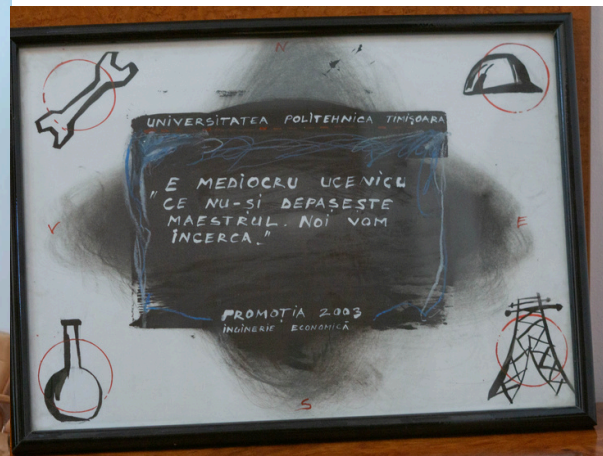 N
UNIVERSITATEA POLITEHNICA TIMIȘOARA
„E MEDIOCRU UCENICU
CE NU-ȘI DEPAȘEȘTE
MAESTRUL. NOI VOM
ÎNCERCA."
V
E
PROMOȚIA 2003
INGINERIE ECONOMICĂ
S